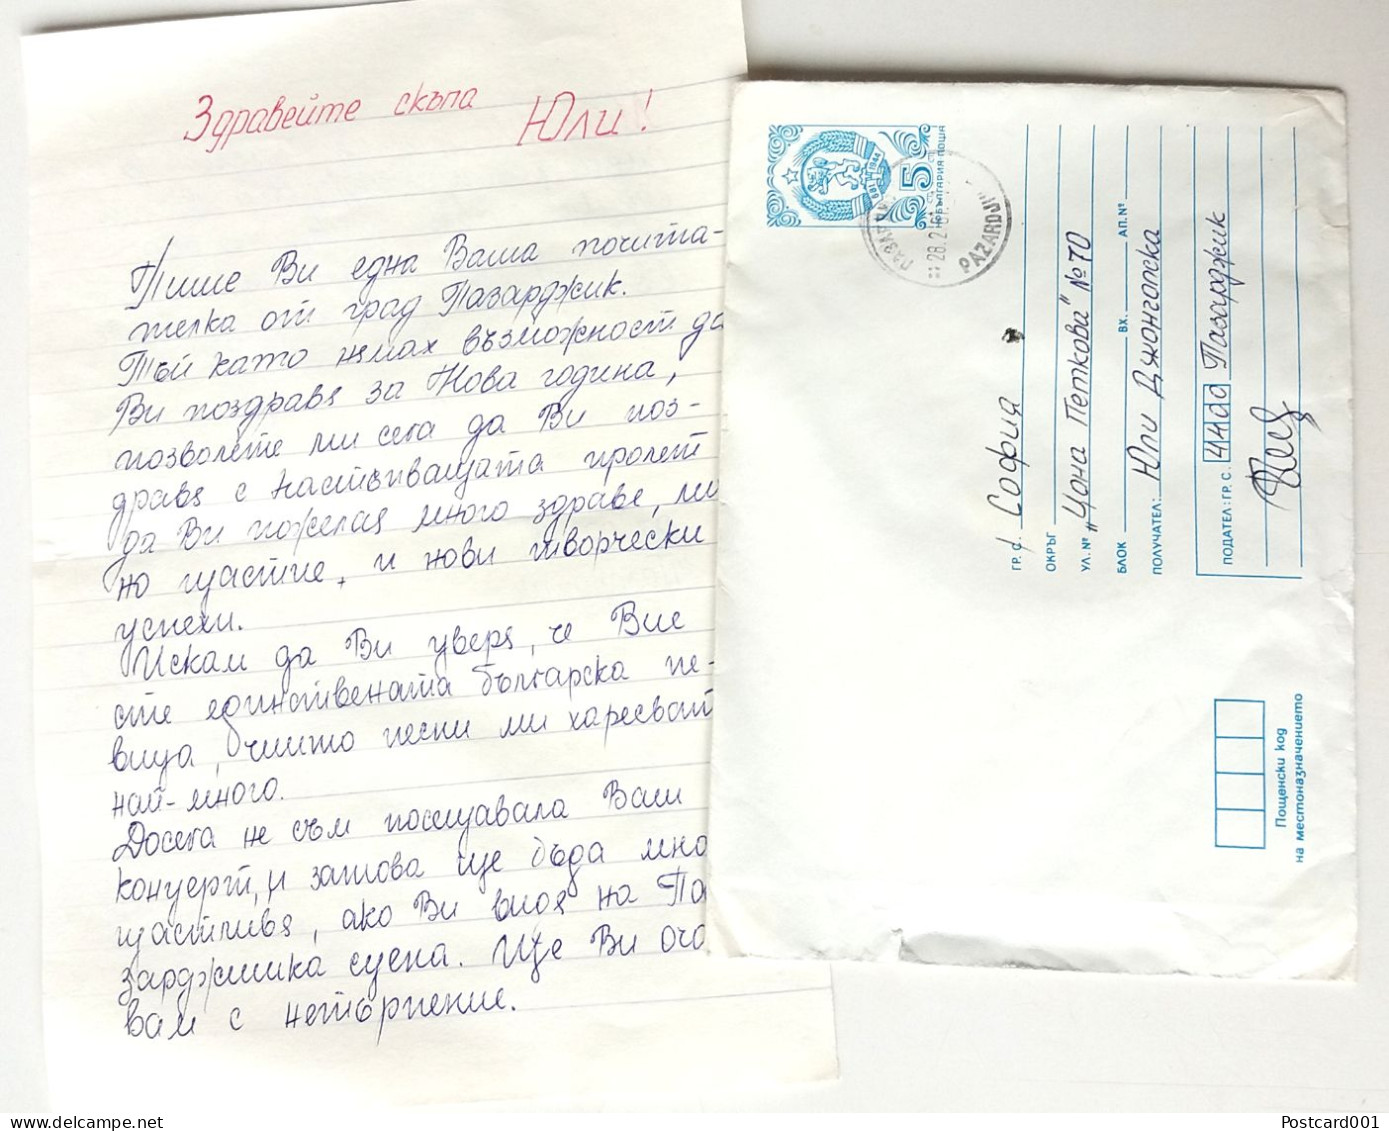 Здравейте скъпа Юли!
Пише Ви една Ваша почита-
телка от град Пазарджик.
Тъй като нямах възможност да
Ви поздравя за Нова година,
позволете ми сега да Ви поз-
дравя с настъпващата пролет
да Ви пожелая много здраве, мн
но щастие, и нови творчески
успехи.
Искам да Ви уверя, че Вие
сте единствената българска пе-
вица, чиито песни ми харесват
най-много.
Досега не съм посещавала Ваш
концерт, и затова ще бъда мно
щастлива, ако Ви видя на Па
зарджишка сцена. Ще Ви оча
вам с нетърпение.
5 СТ
НРБЪЛГАРИЯ ПОЩА
681 1944
28.2
PAZARDJI
ГР. С. София
ОКРЪГ
УЛ. № „Цона Петкова" №70
БЛОК ВХ. АП.№
ПОЛУЧАТЕЛ: Юли Джонгопска
ПОДАТЕЛ: ГР. С. 4400 Пазарджик
Пощенски код
на местоназначението
Postcard001